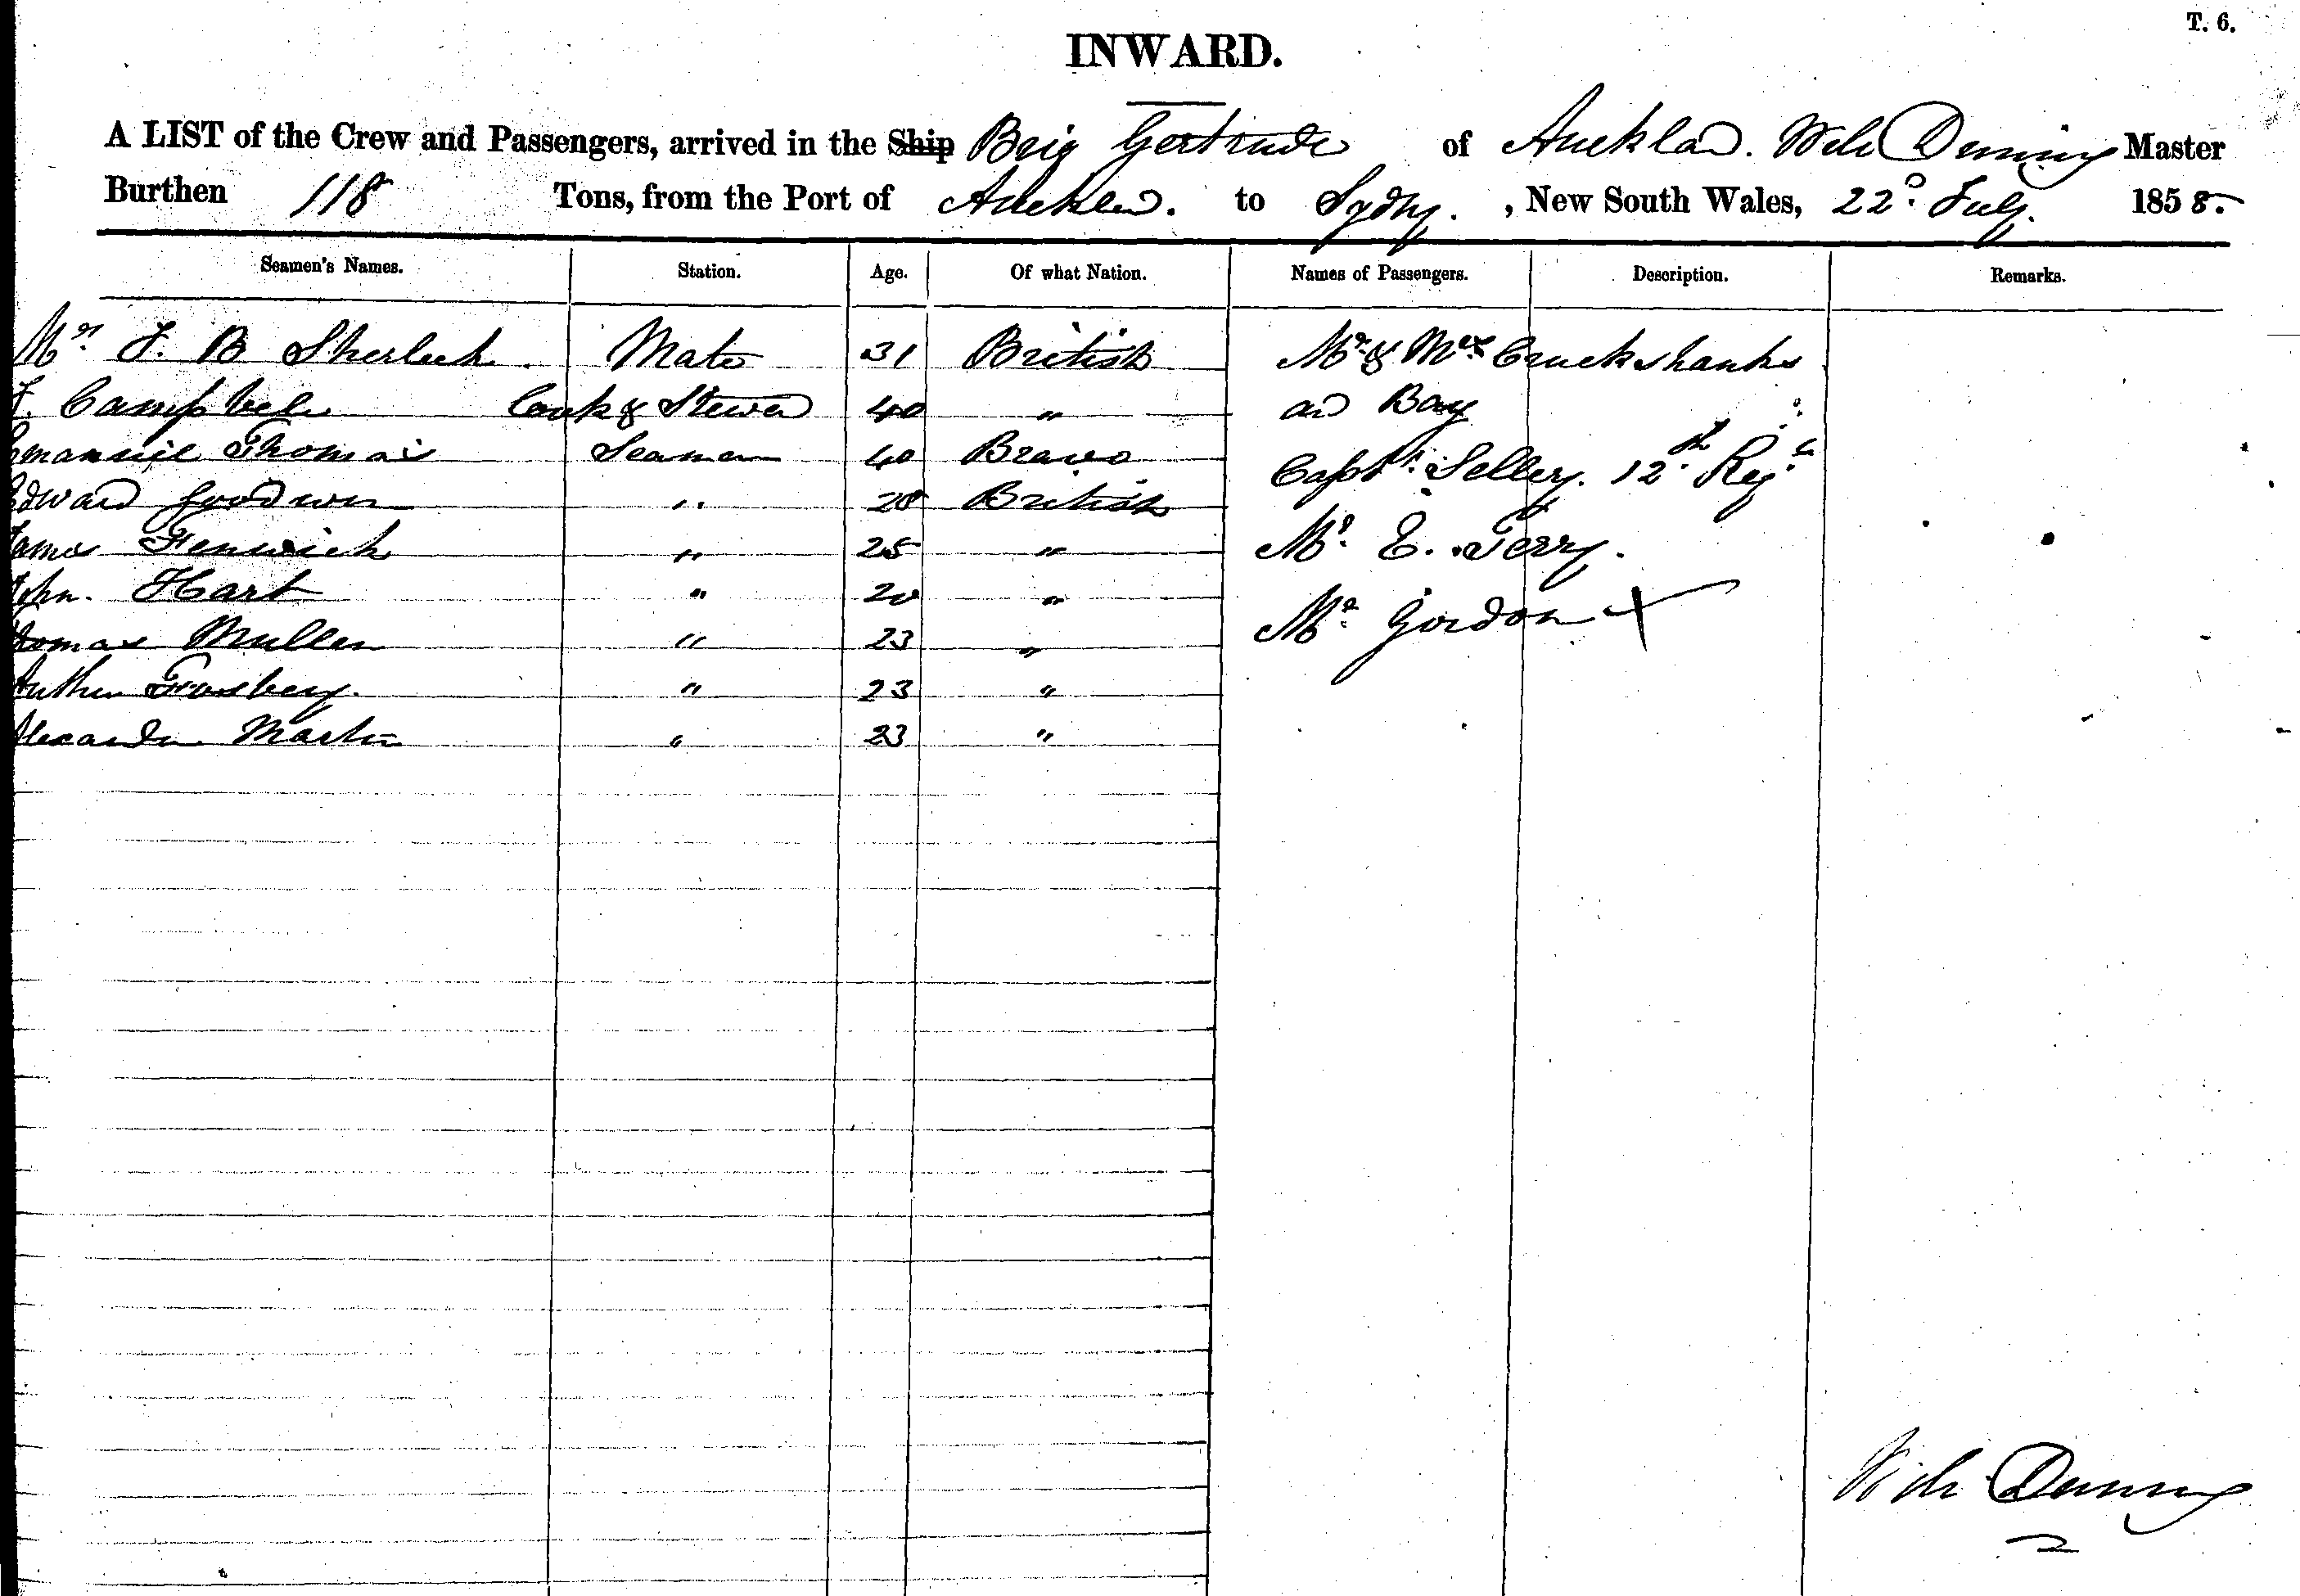 T. 6.
INWARD.
A LIST of the Crew and Passengers, arrived in the Ship Brig Gertrude of Aucklad. Denning Master
Burthen 118 Tons, from the Port of to Sydny. , New South Wales, 22d. July. 1858.
Seamen's Names. Station. Age. Of what Nation. Names of Passengers. Description. Remarks.
Mr. F. B Sherlock Mate 31 British Mr. & Mrs Cruckshanks
Campbell Cook & Steward 40 " and Boy
Emanuel Thomas Seaman 40 Bravo Capt. Sellery. 12th. Regt.
Edward Goodwin " 28 British
James Fenwick " 25 " Mr. E. Terry.
John. Hart " 20 "
Thomas Mullen " 23 " Mr. Gordon
Arthur " 23 "
Alexander Martin " 23 "
Denning